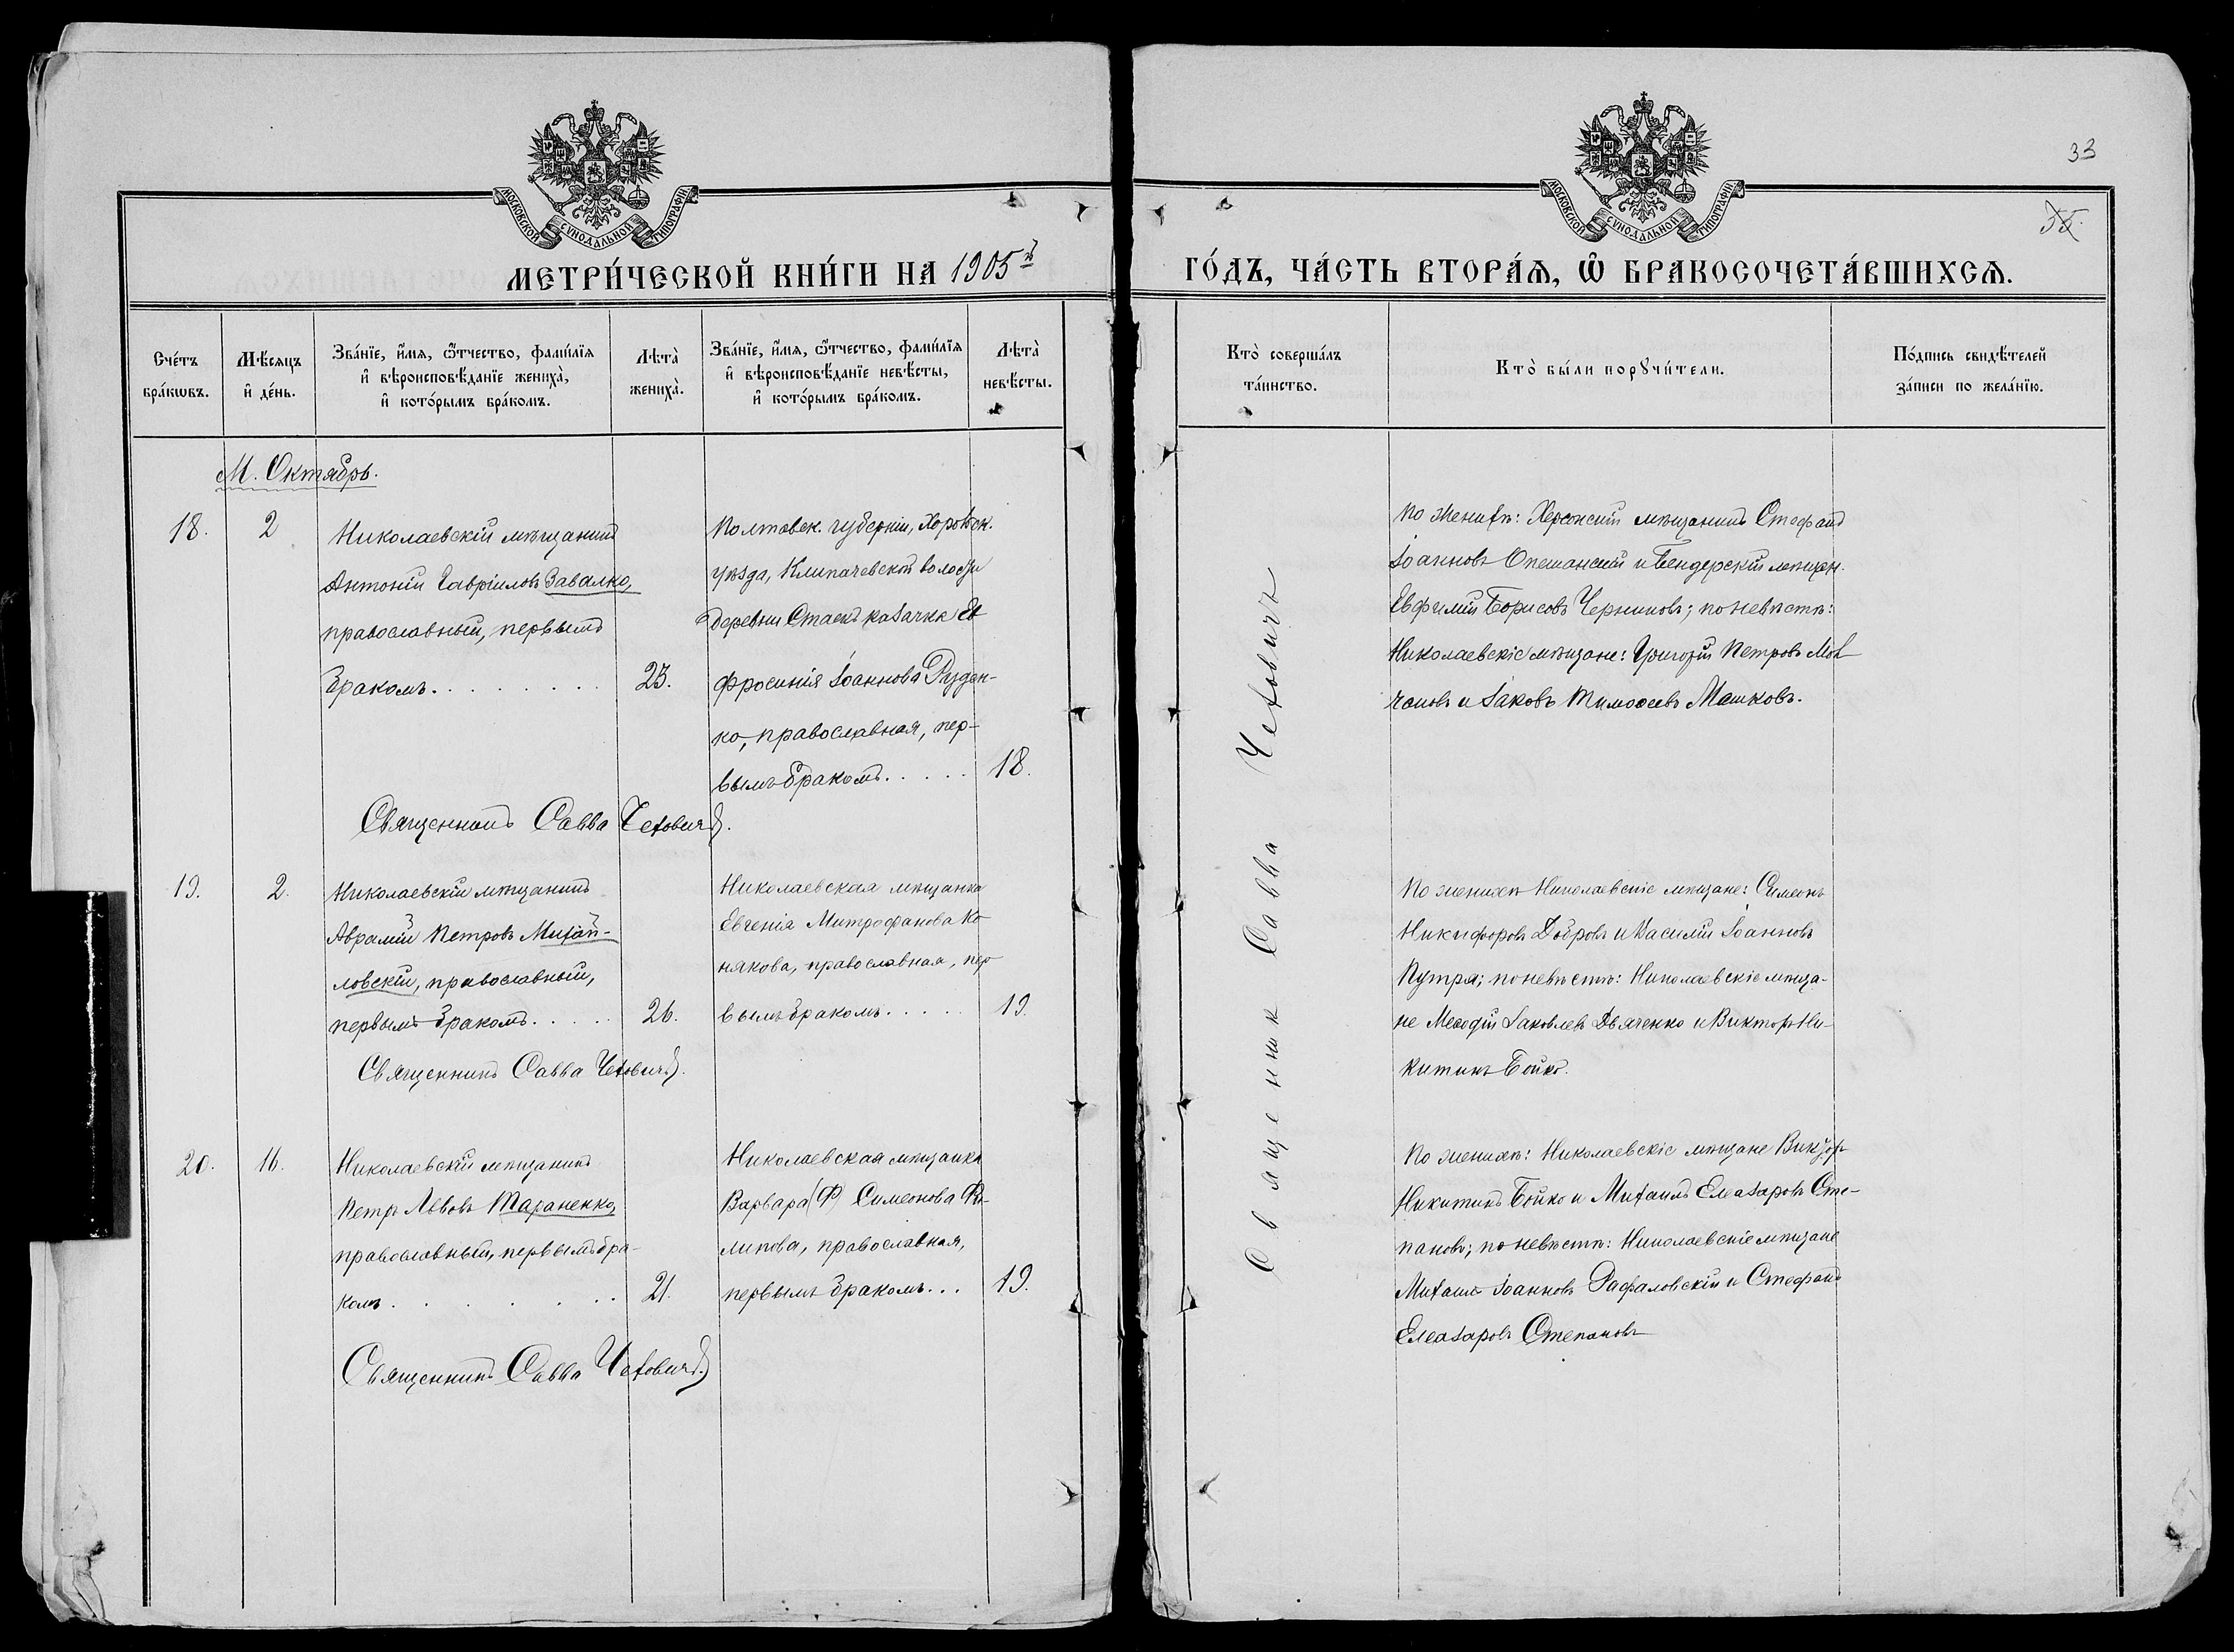 33
МОСКОВСКОЙ СѴНОДАЛЬНОЙ ТИПОГРАФІИ
МОСКОВСКОЙ СѴНОДАЛЬНОЙ ТИПОГРАФІИ
МЕТРИ́ЧЕСКОЙ КНИ́ГИ НА 1905й ГО́ДЪ, ЧА́СТЬ ВТОРА́Я, Ѿ БРАКОСОЧЕТА́ВШИХСЯ.
Сче́тъ
бра́кѡвъ.
Мѣ́сяцъ
и҆ де́нь.
Зва́нїе, и҆́мѧ, ѻ҆́тчество, фами́лїѧ
и҆ вѣроисповѣ́данїе жениха̀,
и҆ кото́рымъ бра́комъ.
Лѣта̀
жениха̀.
Зва́нїе, и҆́мѧ, ѻ҆́тчество, фами́лїѧ
и҆ вѣроисповѣ́данїе невѣ́сты,
и҆ кото́рымъ бра́комъ.
Лѣта̀
невѣ́сты.
Кто̀ соверша́лъ
та́инство.
Кто̀ бы́ли порꙋчи́тели.
По́дпись свидѣ́телей
за́писи по жела́нїю.
М. Октябрь.
18.
2
Николаевскій мѣщанинъ
Антоній Гавріиловъ Завалко,
православный, первымъ
бракомъ . . . . . . . .
23.
Полтавск. губерніи, Хорольск.
уѣзда, Клипачевской волости
деревни Стаекъ казачка Ев
фросинія Іоаннова Руден-
ко, православная, пер-
вымъ бракомъ . . . . .
18.
Священникъ Савва Чехович.
По женихѣ: Херсонскій мѣщанинъ Стефанъ
Іоанновъ Опешанскій и Бендерскій мѣщан.
Евфимій Борисовъ Черниковъ; по невѣстѣ:
Николаевскіе мѣщане: Григорій Петровъ Мол
чановъ и Іаковъ Тимоѳеевъ Машковъ.
19.
2.
Николаевскій мѣщанинъ
Аврамій Петровъ Михай-
ловскій, православный,
первымъ бракомъ . . . . .
26.
Николаевская мѣщанка
Евгенія Митрофанова Ко
някова, православная, пер
вымъ бракомъ . . . . .
19.
Священникъ Савва Чехович.
По женихѣ Николаевскіе мѣщане: Симеонъ
Никифоровъ Добровъ и Василій Іоанновъ
Путря; по невѣстѣ: Николаевскіе мѣща-
не Меѳодій Іаковлевъ Дьяченко и Викторъ Ни-
китинъ Бойко.
20.
16.
Николаевскій мѣщанинъ
Петръ Львовъ Тараненко,
православный, первымъ бра-
комъ . . . . . . .
21.
Николаевская мѣщанка
Варвара (Ф) Симеонова Фи-
липова, православная,
первымъ бракомъ . . .
19.
Священникъ Савва Чехович.
По женихѣ: Николаевскіе мѣщане Викторъ
Никитинъ Бойко и Михаилъ Елеазаровъ Сте-
пановъ; по невѣстѣ: Николаевскіе мѣщане
Михаилъ Іоанновъ Рафаловскій и Стефанъ
Елеазаровъ Степановъ
Священник Савва Чехович